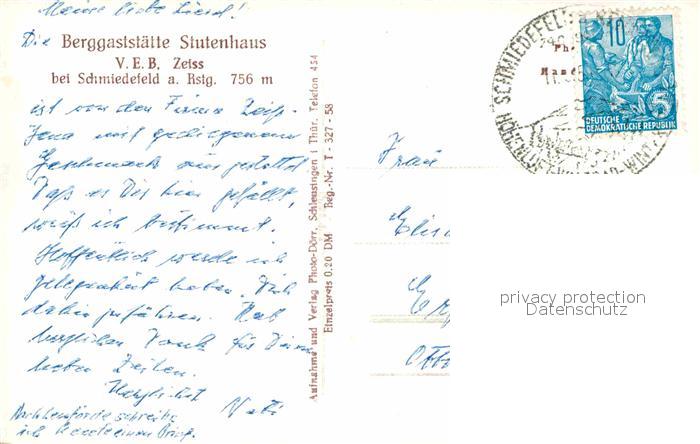 Meine liebe Liesel!
Die Berggaststätte Stutenhaus
V. E. B. Zeiss
bei Schmiedefeld a. Rstg. 756 m
ist von der Firma Zeiss-
Jena mit gediegenem
Geschmack ausgestattet
Daß es Dir hier gefällt,
weiß ich bestimmt.
Hoffentlich werde ich
Gelegenheit haben, Dich
dahin zuführen. Hab
herzlichen Dank für Deine
lieben Zeilen.
Herzlichst
Vati
schreibe
ich Brief.
Aufnahme und Verlag Photo-Dörr, Schleusingen i Thür. Telefon 454
Einzelpreis 0.20 DM Reg.-Nr. T - 327 - 58
10
5
DEUTSCHE
DEMOKRATISCHE REPUBLIK
SCHMIEDEFELD
Frau
privacy protection
Datenschutz